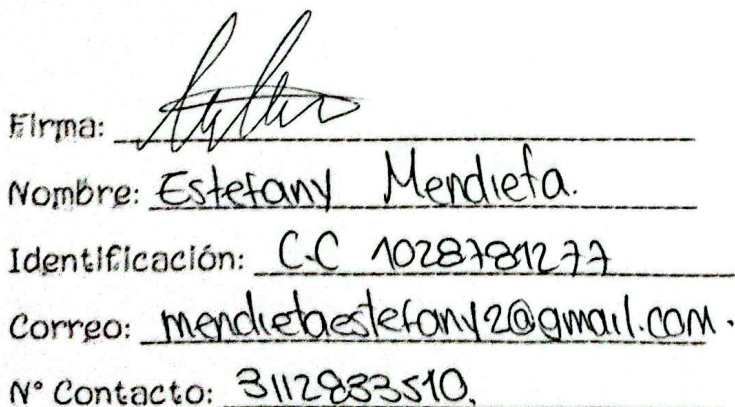 Firma:
Nombre: Estefany Mendieta.
Identificación: C.C 1028781277
Correo: mendietaestefany2@gmail.com.
N° Contacto: 3112833510.